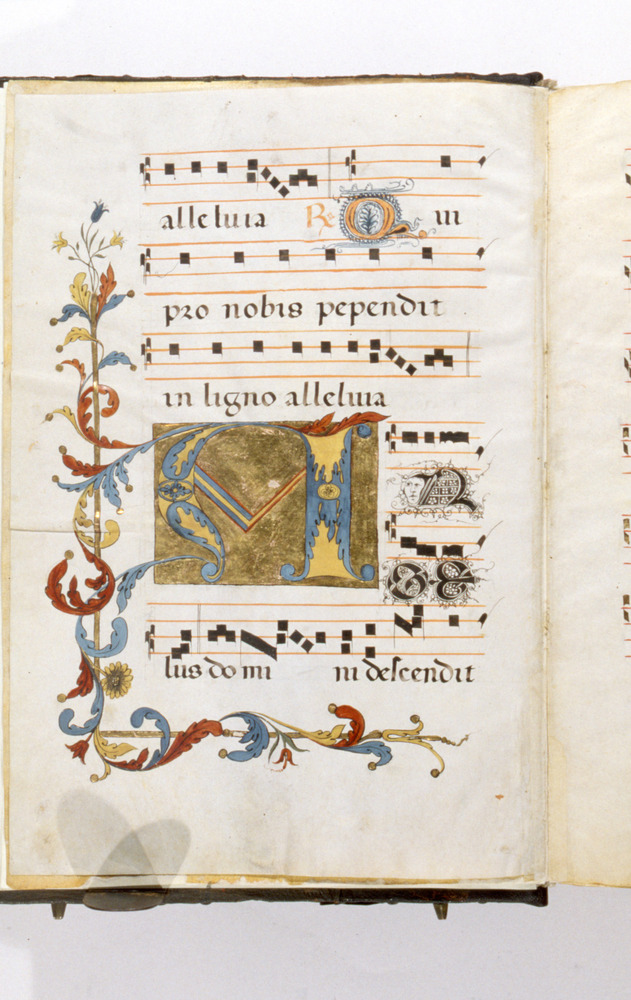 alleluia ℟ Qui
pro nobis pependit
in ligno alleluia
AN
GE
lus domi ni descendit